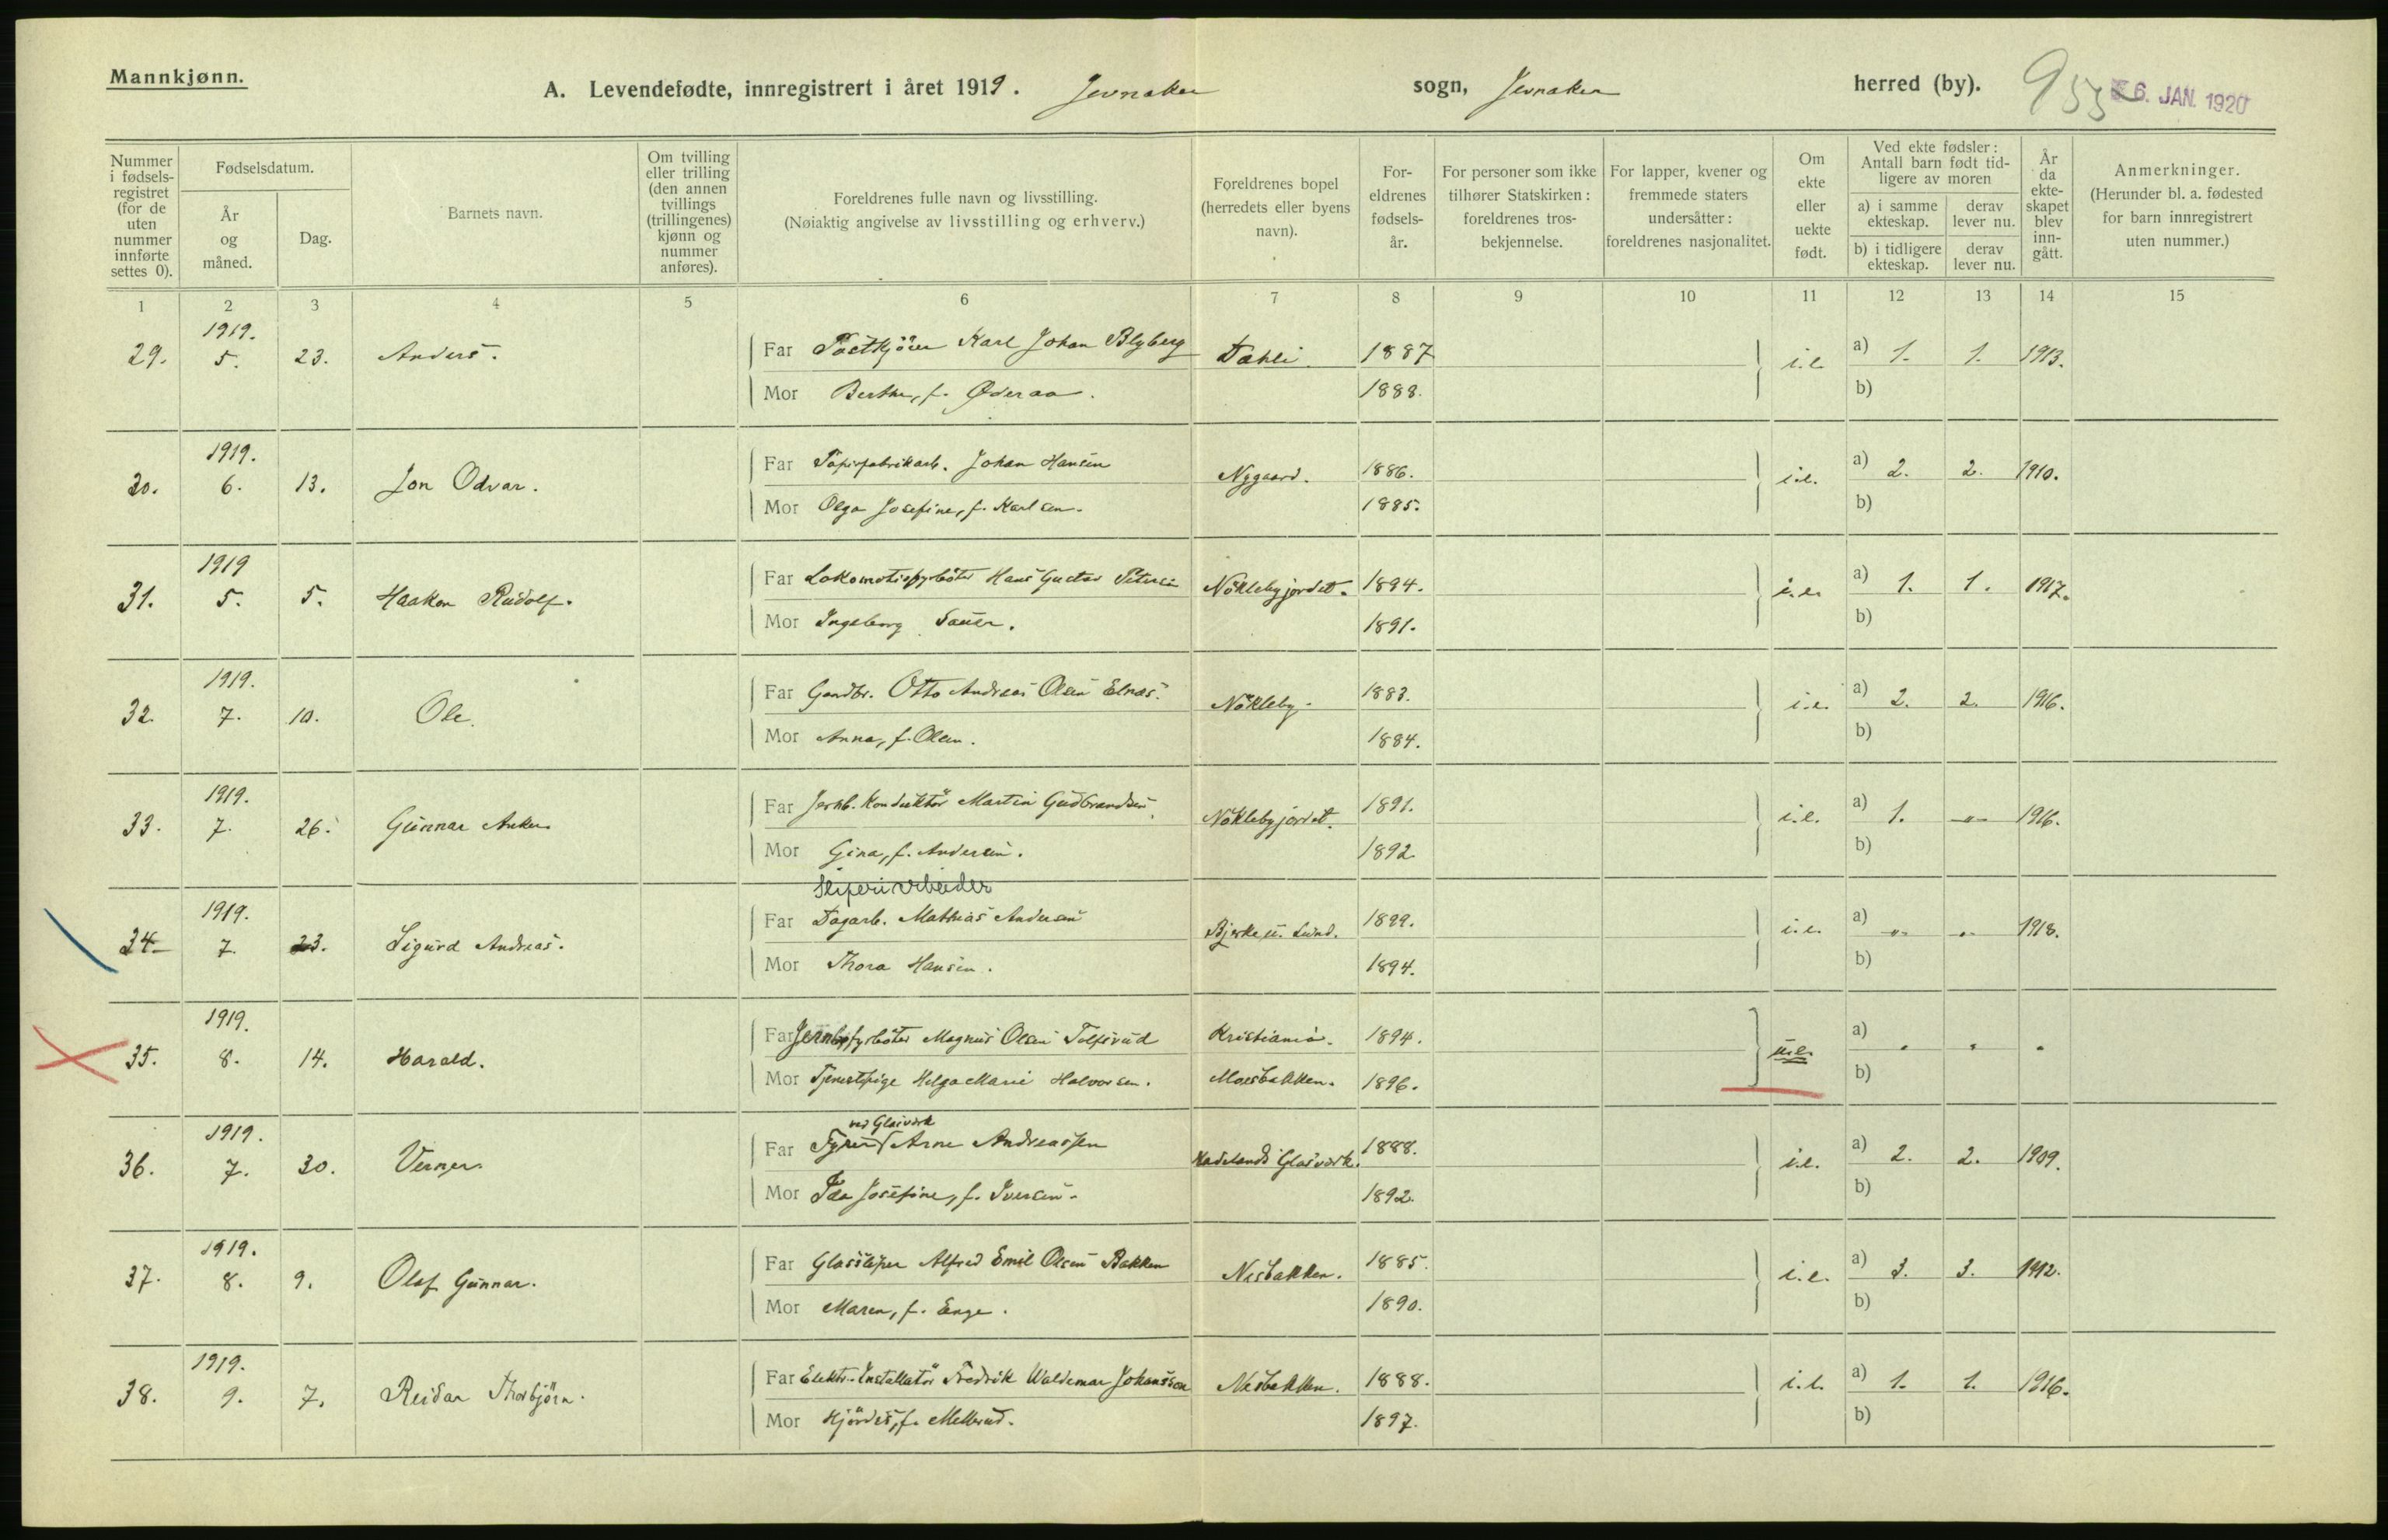 Mannkjønn.
A. Levendefødte, innregistrert i året 1919. Jevnaker sogn, Jevnaker herred (by). 953
6. JAN. 1920
Nummer i fødselsregistret (for de uten nummer innførte settes 0).
Fødselsdatum.
År og måned.
Dag.
Barnets navn.
Om tvilling eller trilling (den annen tvillings (trillingenes) kjønn og nummer anføres).
Foreldrenes fulle navn og livsstilling.
(Nøiaktig angivelse av livsstilling og erhverv.)
Foreldrenes bopel (herredets eller byens navn).
For-eldrenes fødsels-år.
For personer som ikke tilhører Statskirken: foreldrenes tros-bekjennelse.
For lapper, kvener og fremmede staters undersåtter: foreldrenes nasjonalitet.
Om ekte eller uekte født.
Ved ekte fødsler: Antall barn født tid-ligere av moren
a) i samme ekteskap.
derav lever nu.
b) i tidligere ekteskap.
derav lever nu.
År da ekte-skapet blev inn-gått.
Anmerkninger.
(Herunder bl. a. fødested for barn innregistrert uten nummer.)
1 2 3 4 5 6 7 8 9 10 11 12 13 14 15
1919.
29. 5. 23. Anders. Far Postkjører Karl Johan Blyberg Dahli. 1887 i.e. a) 1. 1. 1913.
Mor Berthe, f. Øderaa. 1888. b)
1919.
30. 6. 13. Jon Odvar. Far Papirfabrikarb. Johan Hansen Nygaard. 1886. i.e. a) 2. 2. 1910.
Mor Olga Josefine, f. Karlsen. 1885. b)
1919
31. 5. 5. Haakon Rudolf. Far Lokomotivfyrbøter Hans Gustav Petersen Nøklebyjordet. 1894. i.e. a) 1. 1. 1917.
Mor Ingeborg Sauer. 1891. b)
1919.
32. 7. 10. Ole. Far Gaardbr. Otto Andreas Olsen Elnæs. Nøkleby. 1883. i.e. a) 2. 2. 1916.
Mor Anna, f. Olsen. 1884. b)
1919.
33. 7. 26. Gunnar Anker Far Jernb. Konduktør Martin Gudbrandsen. Nøklebyjordet. 1891. i.e. a) 1. -"- 1916.
Mor Gina, f. Andersen. 1892. b)
Sliperiarbeider
1919.
34. 7. 23. Sigurd Andreas. Far Dagarb. Mathias Andersen Bjerke u. Lund. 1899. i.e. a) -"- -"- 1918.
Mor Thora Hansen. 1894. b)
1919.
35. 8. 14. Harald. Far Jernbfyrbøter Magnus Olsen Tolfsrud Kristiania. 1894. u.e. a) " " "
Mor Tjenestpige Helga Marie Halvorsen. Moesbakken. 1896. b)
ved Glasværk
1919.
36. 7. 30. Verner. Far Fyrer Arne Andreassen Hadelands Glasværk. 1888. i.e. a) 2. 2. 1909.
Mor Ida Josefine, f. Iversen. 1892. b)
1919.
37. 8. 9. Olaf Gunnar. Far Glassliper Alfred Emil Olsen Bakken Nesbakken. 1885. i.e. a) 3. 3. 1912.
Mor Maren, f. Enge. 1890. b)
1919.
38. 9. 7. Reidar Thorbjørn. Far Elektr. Installatør Fredrik Waldemar Johanssen Nesbakken. 1888. i.e. a) 1. 1. 1916.
Mor Hjørdis, f. Mellerud. 1897. b)